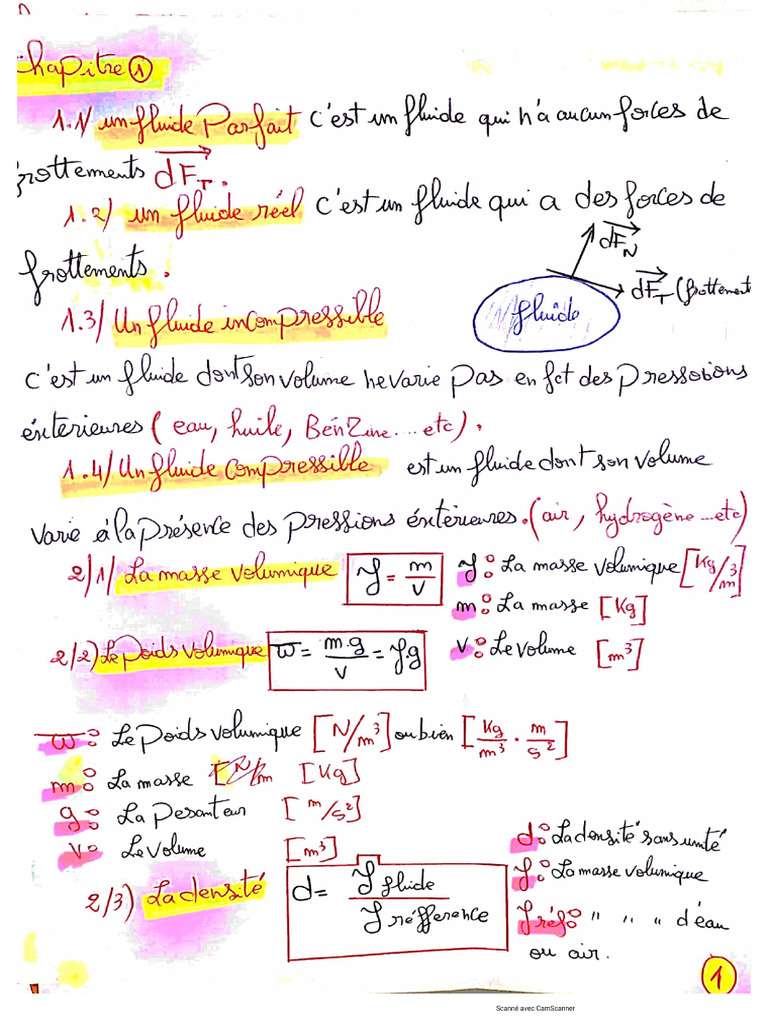 Chapitre ①
1.1/ un fluide Parfait c'est un fluide qui n'a aucun forces de
frottements dF_T.
1.2/ un fluide réel c'est un fluide qui a des forces de
frottements.
dF_N
dF_T (frottement
fluide
1.3/ Un fluide incompressible
c'est un fluide dont son volume ne varie pas en fct des pressoions
éxterieures (eau, huile, BénZine....etc).
1.4/ Un fluide compressible est un fluide dont son volume
varie à la présence des pressions éxtérieures. (air, hydrogène...etc)
2/1/ La masse volumique ρ = m/v ρ: La masse volumique [Kg/m³]
m: La masse [Kg]
2/2) Le Poids volumique ϖ = m.g/v = ρg v: Le volume [m³]
ϖ: Le Poids volumique [N/m³] ou bien [kg/m³ . m/s²]
m: La masse [Kg]
g: La Pesanteur [m/s²]
v: Le volume [m³]
2/3) La densité d = ρ fluide / ρ réfference
d: La densité sans unité
ρ: La masse volumique
ρ réf: " " " d'eau
ou air.
1
Scanné avec CamScanner